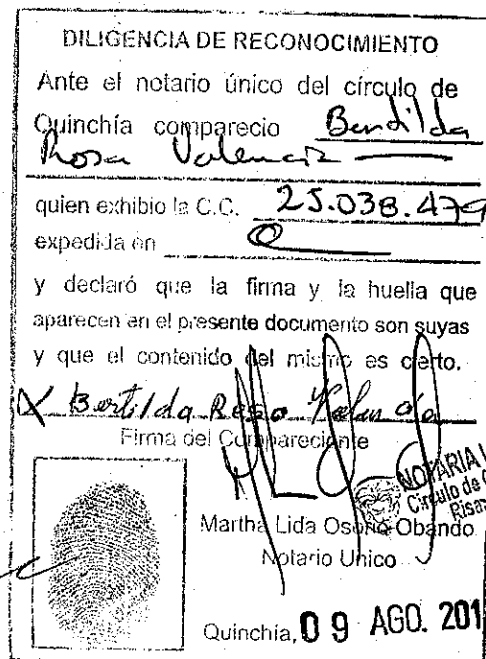 DILIGENCIA DE RECONOCIMIENTO
Ante el notario único del círculo de
Quinchía comparecio Bertilda
Rosa Valencia
quien exhibio la C.C. 25.038.479
expedida en Q
y declaró que la firma y la huella que
aparecen en el presente documento son suyas
y que el contenido del mismo es cierto.
X Bertilda Rosa Valencia
Firma del Compareciente
NOTARIA
Círculo de
Martha Lida Osorio Obando
Notario Unico
Quinchía, 09 AGO. 201